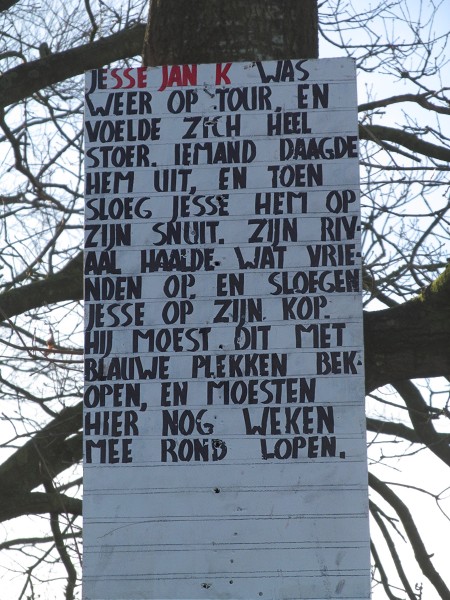 JESSE JAN K WAS
WEER OP TOUR, EN
VOELDE ZICH HEEL
STOER. IEMAND DAAGDE
HEM UIT, EN TOEN
SLOEG JESSE HEM OP
ZIJN SNUIT. ZIJN RIV-
AAL HAALDE. WAT VRIE-
NDEN OP, EN SLOEGEN
JESSE OP ZIJN KOP.
HIJ MOEST DIT MET
BLAUWE PLEKKEN BEK-
OPEN, EN MOESTEN
HIER NOG WEKEN
MEE ROND LOPEN.